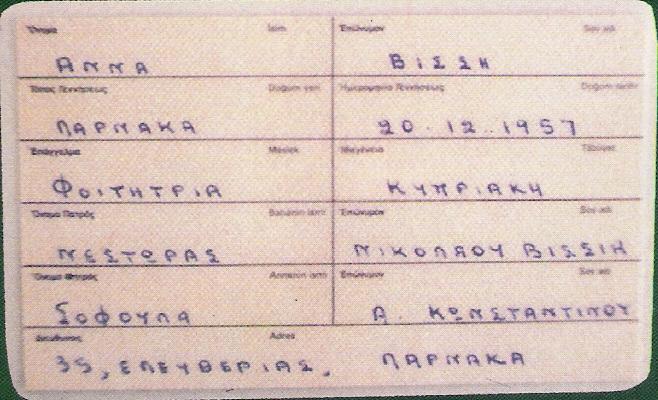 Όνομα İsim Επώνυμον Soy adı
ΑΝΝΑ ΒΙΣΣΗ
Τόπος Γεννήσεως Doğum yeri Ημερομηνία Γεννήσεως Doğum tarihi
ΛΑΡΝΑΚΑ 20.12.1957
Επάγγελμα Meslek Ιθαγένεια Tâbiiyet
ΦΟΙΤΗΤΡΙΑ ΚΥΠΡΙΑΚΗ
Όνομα Πατρός Babanın ismi Επώνυμον Soy adı
ΝΕΣΤΟΡΑΣ ΝΙΚΟΛΑΟΥ ΒΙΣΣΗ
Όνομα Μητρός Annenin ismi Επώνυμον Soy adı
ΣΟΦΟΥΛΑ Α. ΚΩΝΣΤΑΝΤΙΝΟΥ
Διεύθυνσις Adres
35, ΕΛΕΥΘΕΡΙΑΣ, ΛΑΡΝΑΚΑ